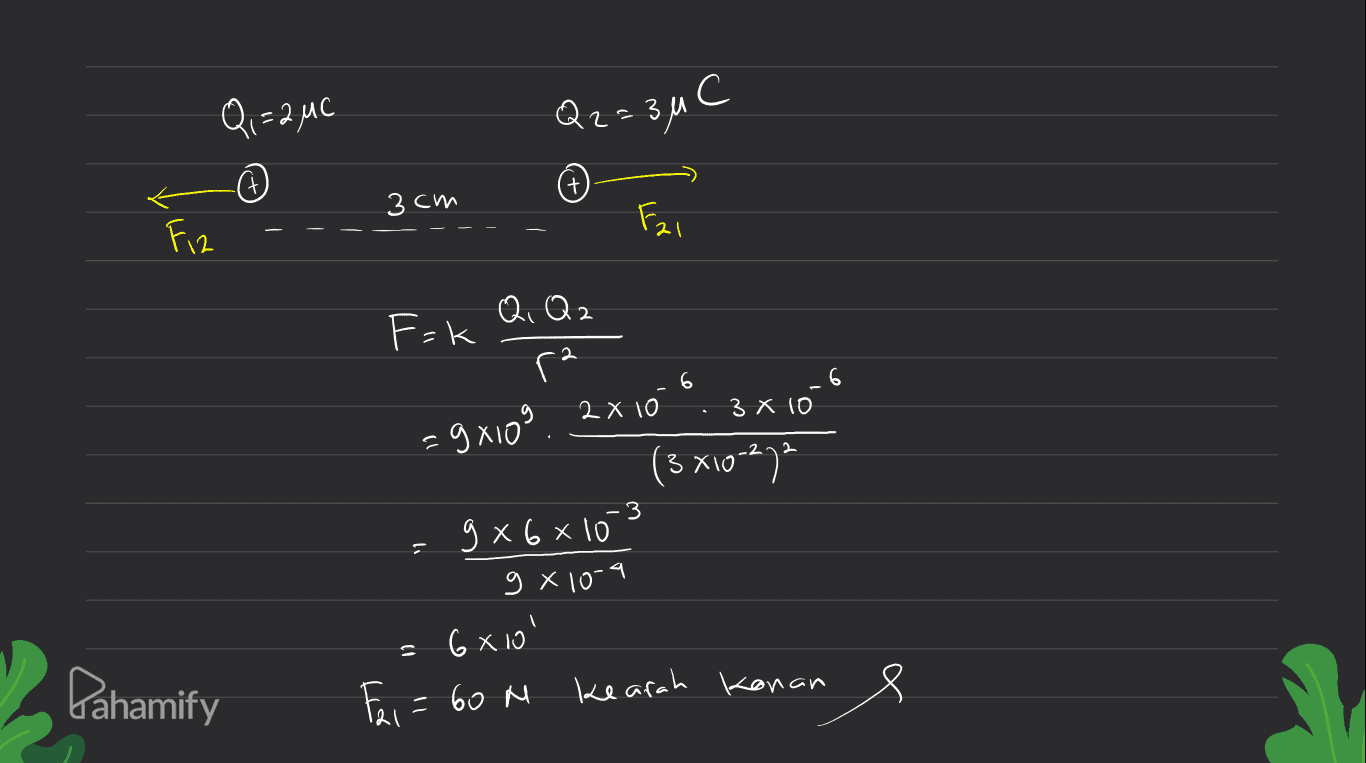 Q₁=2μC Q₂=3μC
+ 3 cm +
F₁₂ F₂₁
F=k Q₁Q₂
r²
=9×10⁹. 2×10⁻⁶ . 3×10⁻⁶
(3×10⁻²)²
= 9×6×10⁻³
9×10⁻⁴
= 6×10¹
F₂₁ = 60 N kearah kanan
Pahamify